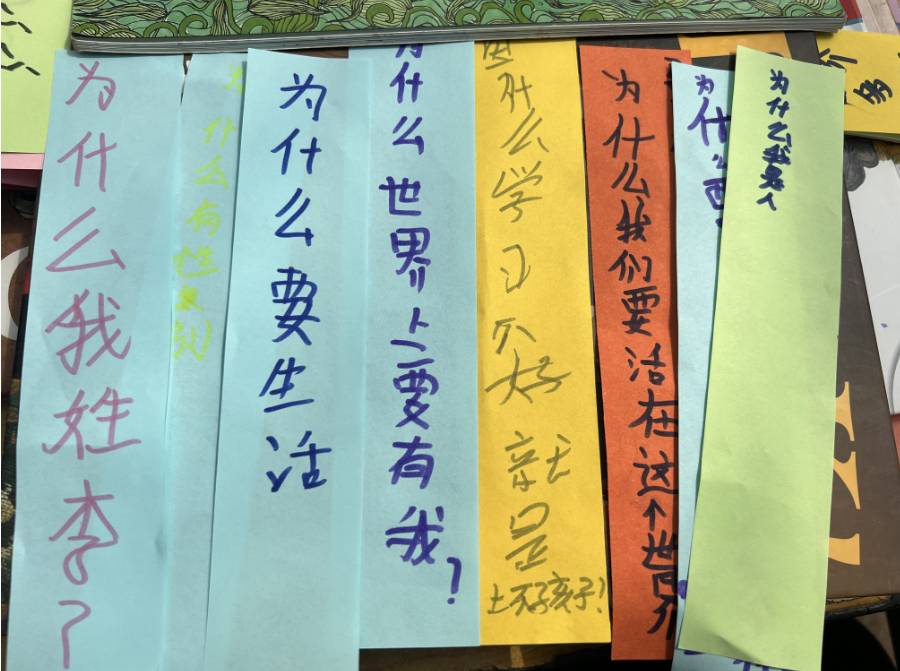 为什么我姓李？
为什么有性别
为什么要生活
为什么世界上要有我？
什么学习不好就是坏孩子！
为什么我们要活在这个世界
为什么要
为什么我是人
多